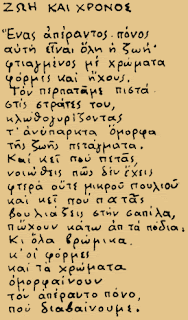 ΖΩΗ ΚΑΙ ΧΡΟΝΟΣ
Ἕνας ἀπέραντος πόνος
αὐτή εἶναι ὅλη ἡ ζωή·
φτιαγμένος μέ χρώματα
φόρμες καί ἤχους.
Τόν περπατᾶμε πιστά
στίς στράτες του,
κλωθογυρίζοντας
τ' ἀνύπαρκτα ὄμορφα
τῆς ζωῆς πετάγματα.
Καί κεῖ πού πετᾶς,
νοιώθεις πώς δέν ἔχεις
φτερά οὔτε μικροῦ πουλιοῦ
καί κεῖ πού πατᾶς
βουλιάζεις στήν σαπίλα,
πὤχουν κάτω ἀπ τά πόδια.
Κι ὅλα βρώμικα
κ' οἱ φόρμες
καί τά χρώματα
ὀμορφαίνουν
τόν ἀπέραντο πόνο,
πού διαβαίνουμε.